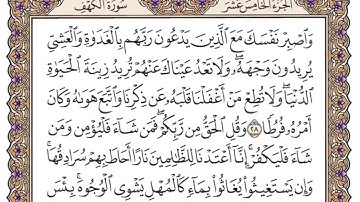 الجزء الخامس عشر سورة الكهف
وَٱصْبِرْ نَفْسَكَ مَعَ ٱلَّذِينَ يَدْعُونَ رَبَّهُم بِٱلْغَدَوٰةِ وَٱلْعَشِىِّ
يُرِيدُونَ وَجْهَهُۥ ۖ وَلَا تَعْدُ عَيْنَاكَ عَنْهُمْ تُرِيدُ زِينَةَ ٱلْحَيَوٰةِ
ٱلدُّنْيَا ۖ وَلَا تُطِعْ مَنْ أَغْفَلْنَا قَلْبَهُۥ عَن ذِكْرِنَا وَٱتَّبَعَ هَوَىٰهُ وَكَانَ
أَمْرُهُۥ فُرُطًا ٢٨ وَقُلِ ٱلْحَقُّ مِن رَّبِّكُمْ ۖ فَمَن شَآءَ فَلْيُؤْمِن وَمَن
شَآءَ فَلْيَكْفُرْ ۚ إِنَّآ أَعْتَدْنَا لِلظَّٰلِمِينَ نَارًا أَحَاطَ بِهِمْ سُرَادِقُهَا ۚ
وَإِن يَسْتَغِيثُوا۟ يُغَاثُوا۟ بِمَآءٍ كَٱلْمُهْلِ يَشْوِى ٱلْوُجُوهَ ۚ بِئْسَ